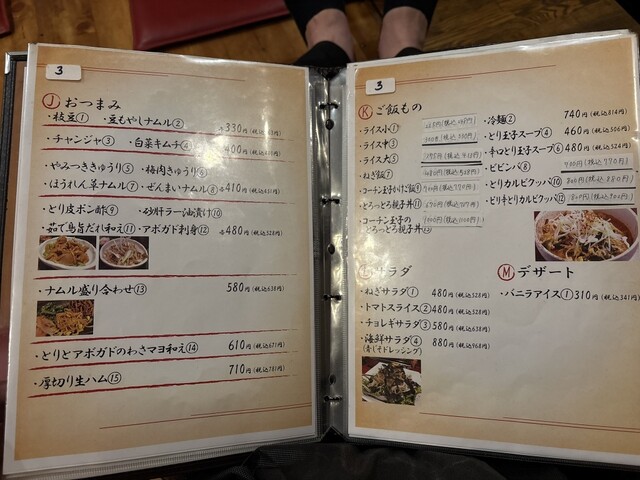 3
Ⓙ おつまみ
・枝豆① ・豆もやしナムル② 各330円
・チャンジャ③ ・白菜キムチ④ 400円
・やみつききゅうり⑤ ・梅肉きゅうり⑥
・ほうれん草ナムル⑦ ・ぜんまいナムル⑧ 各410円(税込451円)
・とり皮ポン酢⑨ ・砂肝ラー油漬け⑩
・茹で鳥旨だれ和え⑪ ・アボガド刺身⑫ 各480円(税込528円)
・ナムル盛り合わせ⑬ 580円(税込638円)
・とりとアボガドのわさマヨ和え⑭ 610円(税込671円)
・厚切り生ハム⑮ 710円(税込781円)
3
Ⓚ ご飯もの
・ライス小①
・ライス中③
・ライス大⑤
・ねぎ飯⑦
・コーチン玉子かけご飯⑨
・とろっとろ親子丼⑪
・コーチン玉子の
とろっとろ親子丼⑬
・冷麺② 740円(税込814円)
・とり玉子スープ④ 460円(税込506円)
・辛口とり玉子スープ⑥ 480円(税込528円)
・ビビンバ⑧ 700円(税込770円)
・とりカルビクッパ⑩ 800円(税込880円)
・辛口とりカルビクッパ⑫
サラダ
・ねぎサラダ① 480円(税込528円)
・トマトスライス② 480円(税込528円)
・チョレギサラダ③ 580円(税込638円)
・海鮮サラダ④ 880円(税込968円)
(青じそドレッシング)
Ⓜ デザート
・バニラアイス① 310円(税込341円)